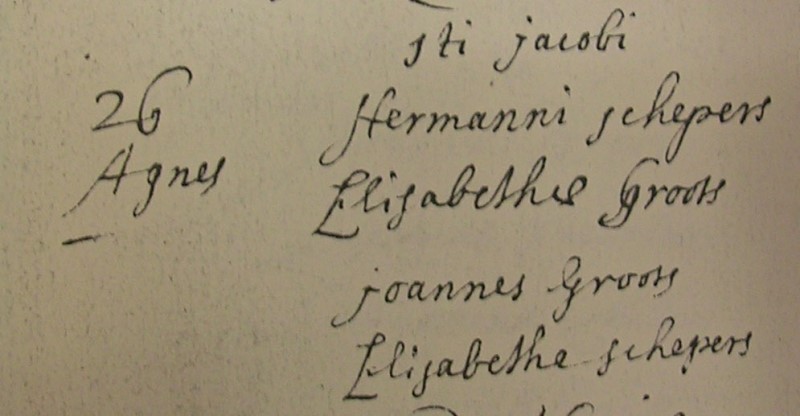 sti jacobi
26
Hermanni schepers
Agnes
Elisabethæ Groots
joannes Groots
Elisabethe schepers